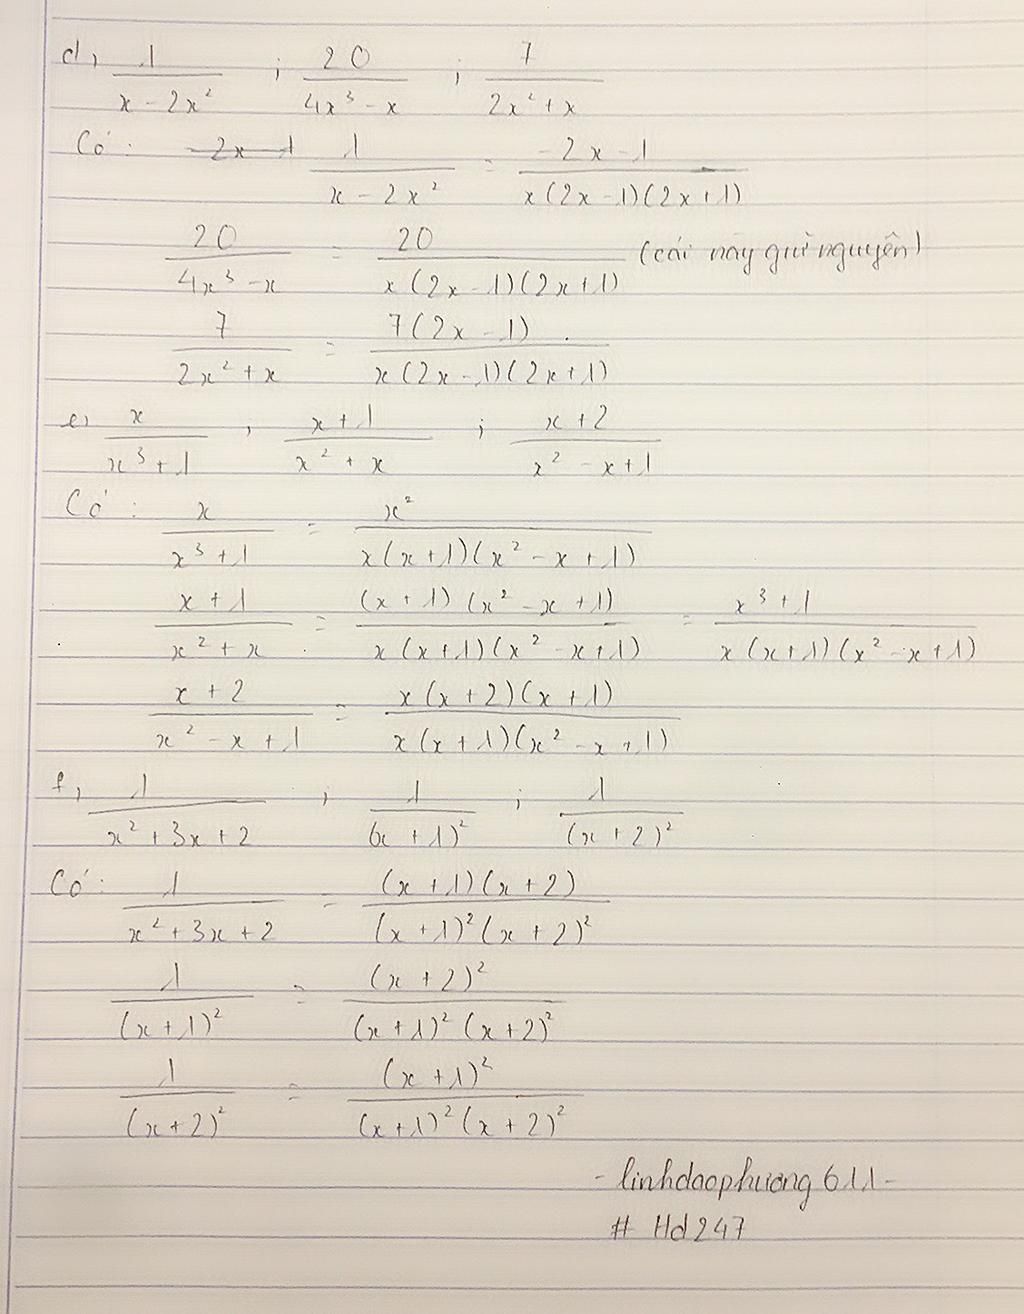 d, 1/(x - 2x²) ; 20/(4x³ - x) ; 7/(2x² + x)
Có: 1/(x - 2x²) = (-2x - 1)/(x(2x - 1)(2x + 1))
20/(4x³ - x) = 20/(x(2x - 1)(2x + 1)) (cái này giữ nguyên)
7/(2x² + x) = 7(2x - 1)/(x(2x - 1)(2x + 1))
e, x/(x³ + 1) ; (x + 1)/(x² + x) ; (x + 2)/(x² - x + 1)
Có: x/(x³ + 1) = x²/(x(x + 1)(x² - x + 1))
(x + 1)/(x² + x) = (x + 1)(x² - x + 1)/(x(x + 1)(x² - x + 1)) = (x³ + 1)/(x(x + 1)(x² - x + 1))
(x + 2)/(x² - x + 1) = x(x + 2)(x + 1)/(x(x + 1)(x² - x + 1))
f, 1/(x² + 3x + 2) ; 1/(x + 1)² ; 1/(x + 2)²
Có: 1/(x² + 3x + 2) = (x + 1)(x + 2)/((x + 1)²(x + 2)²)
1/(x + 1)² = (x + 2)²/((x + 1)²(x + 2)²)
1/(x + 2)² = (x + 1)²/((x + 1)²(x + 2)²)
- linhdaophuong611 -
# Hd247